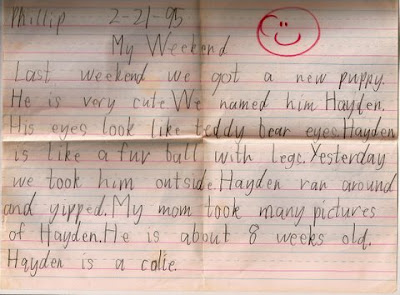 Phillip 2-21-95
My Weekend
Last weekend we got a new puppy.
He is very cute. We named him Hayden.
His eyes look like teddy bear eyes. Hayden
is like a fur ball with legs. Yesterday
we took him outside. Hayden ran around
and yipped. My mom took many pictures
of Hayden. He is about 8 weeks old.
Hayden is a colie.